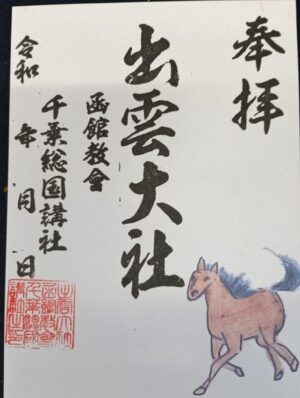 奉拝
出雲大社
函館教會
千葉総国講社
令和 年 月 日